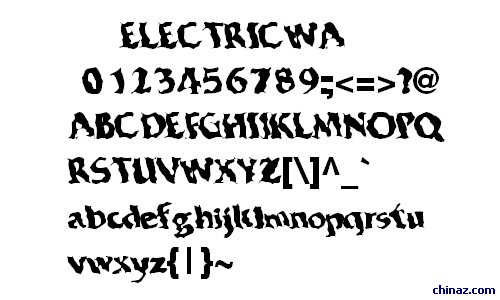 ELECTRICWA
0123456789:;<=>?@
ABCDEFGHIJKLMNOPQ
RSTUVWXYZ[\]^_`
abcdefghijklmnopqrstu
vwxyz{|}~
chinaz.com